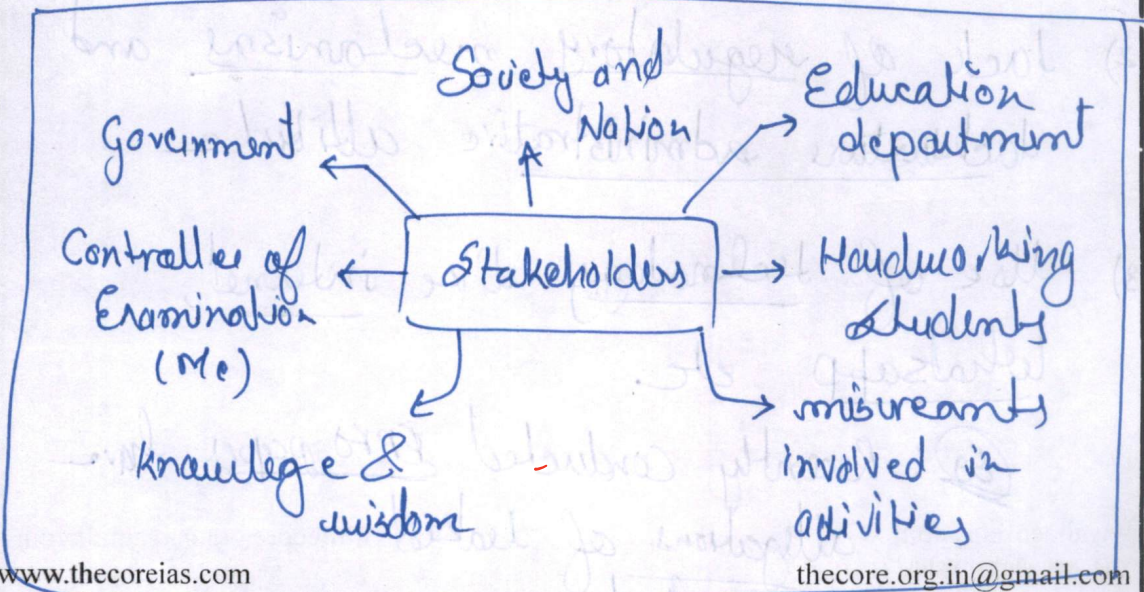 Society and
Nation
Government
Education
department
Controller of
Examination
(Me)
Stakeholders
Hardworking
students
Knowledge &
wisdom
miscreants
involved in
activities
www.thecoreias.com
thecore.org.in@gmail.com